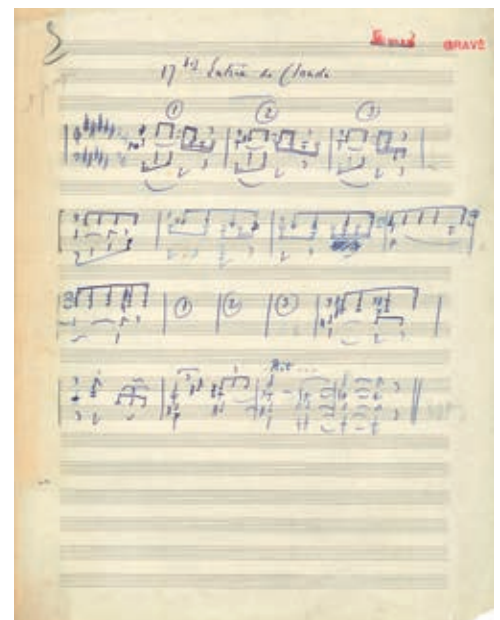 GRAVÉ
17 bis Entrée de Claude
① ② ③
① ② ③
Rit...